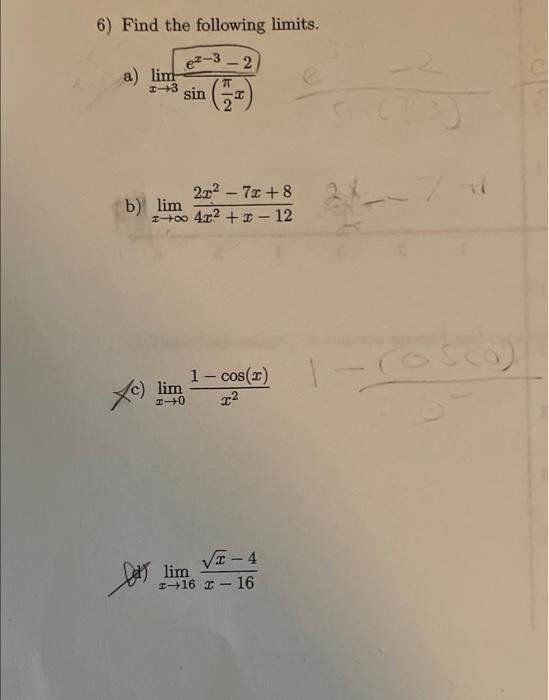 6) Find the following limits.
a) lim x→3 (e^(x−3) − 2) / sin(π/2 x)
b) lim x→∞ (2x² − 7x + 8) / (4x² + x − 12)
c) lim x→0 (1 − cos(x)) / x²
1 − cos(0) / 0²
d) lim x→16 (√x − 4) / (x − 16)